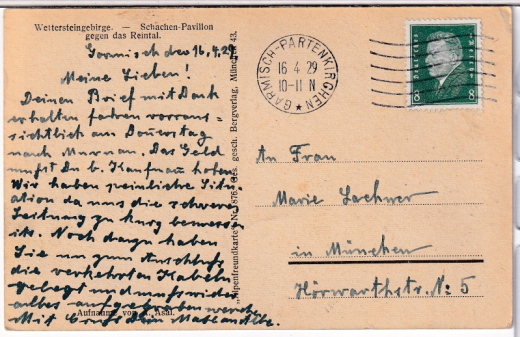 Wettersteingebirge. — Schachen-Pavillon
gegen das Reintal.
Garmisch den 16.4.29
Meine Lieben!
Deinen Brief mit Dank
erhalten fahren vorraus-
sichtlich am Donnerstag
nach Murnau. Das Geld
mußt Du b. Kaufmann holen
Wir haben peinliche Situ-
ation da uns die schwere
Leitung zu kurz bemessen
ist. Noch dazu haben
Sie uns zum Anschluß
die verkehrten Kabeln
gelegt und muß wieder
alles aufgegraben werden
Mit Gruß Dein
Aufnahme von A. Asal.
"Alpenfreundkarte" Nr. 1876. Ges. gesch. Bergverlag, München 43.
GARMISCH-PARTENKIRCHEN
16 4 29
10-11 N
8 8
An Frau
Marie Lachner
in München
Hörwarthstr. № 5